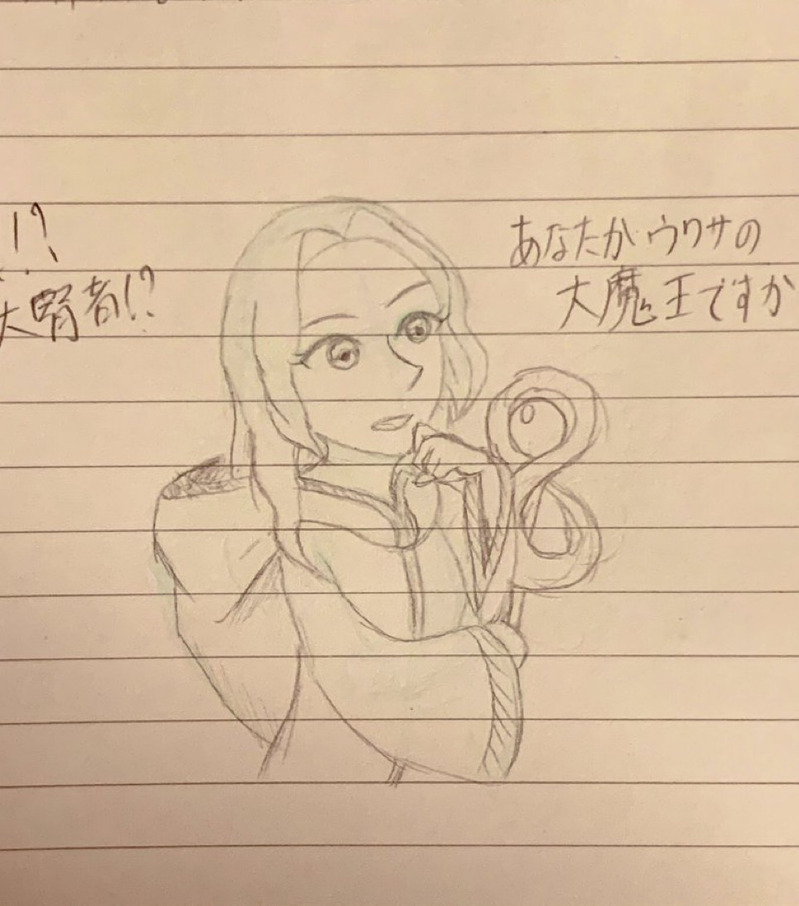 !?
大賢者!?
あなたか ウワサの
大魔王ですか